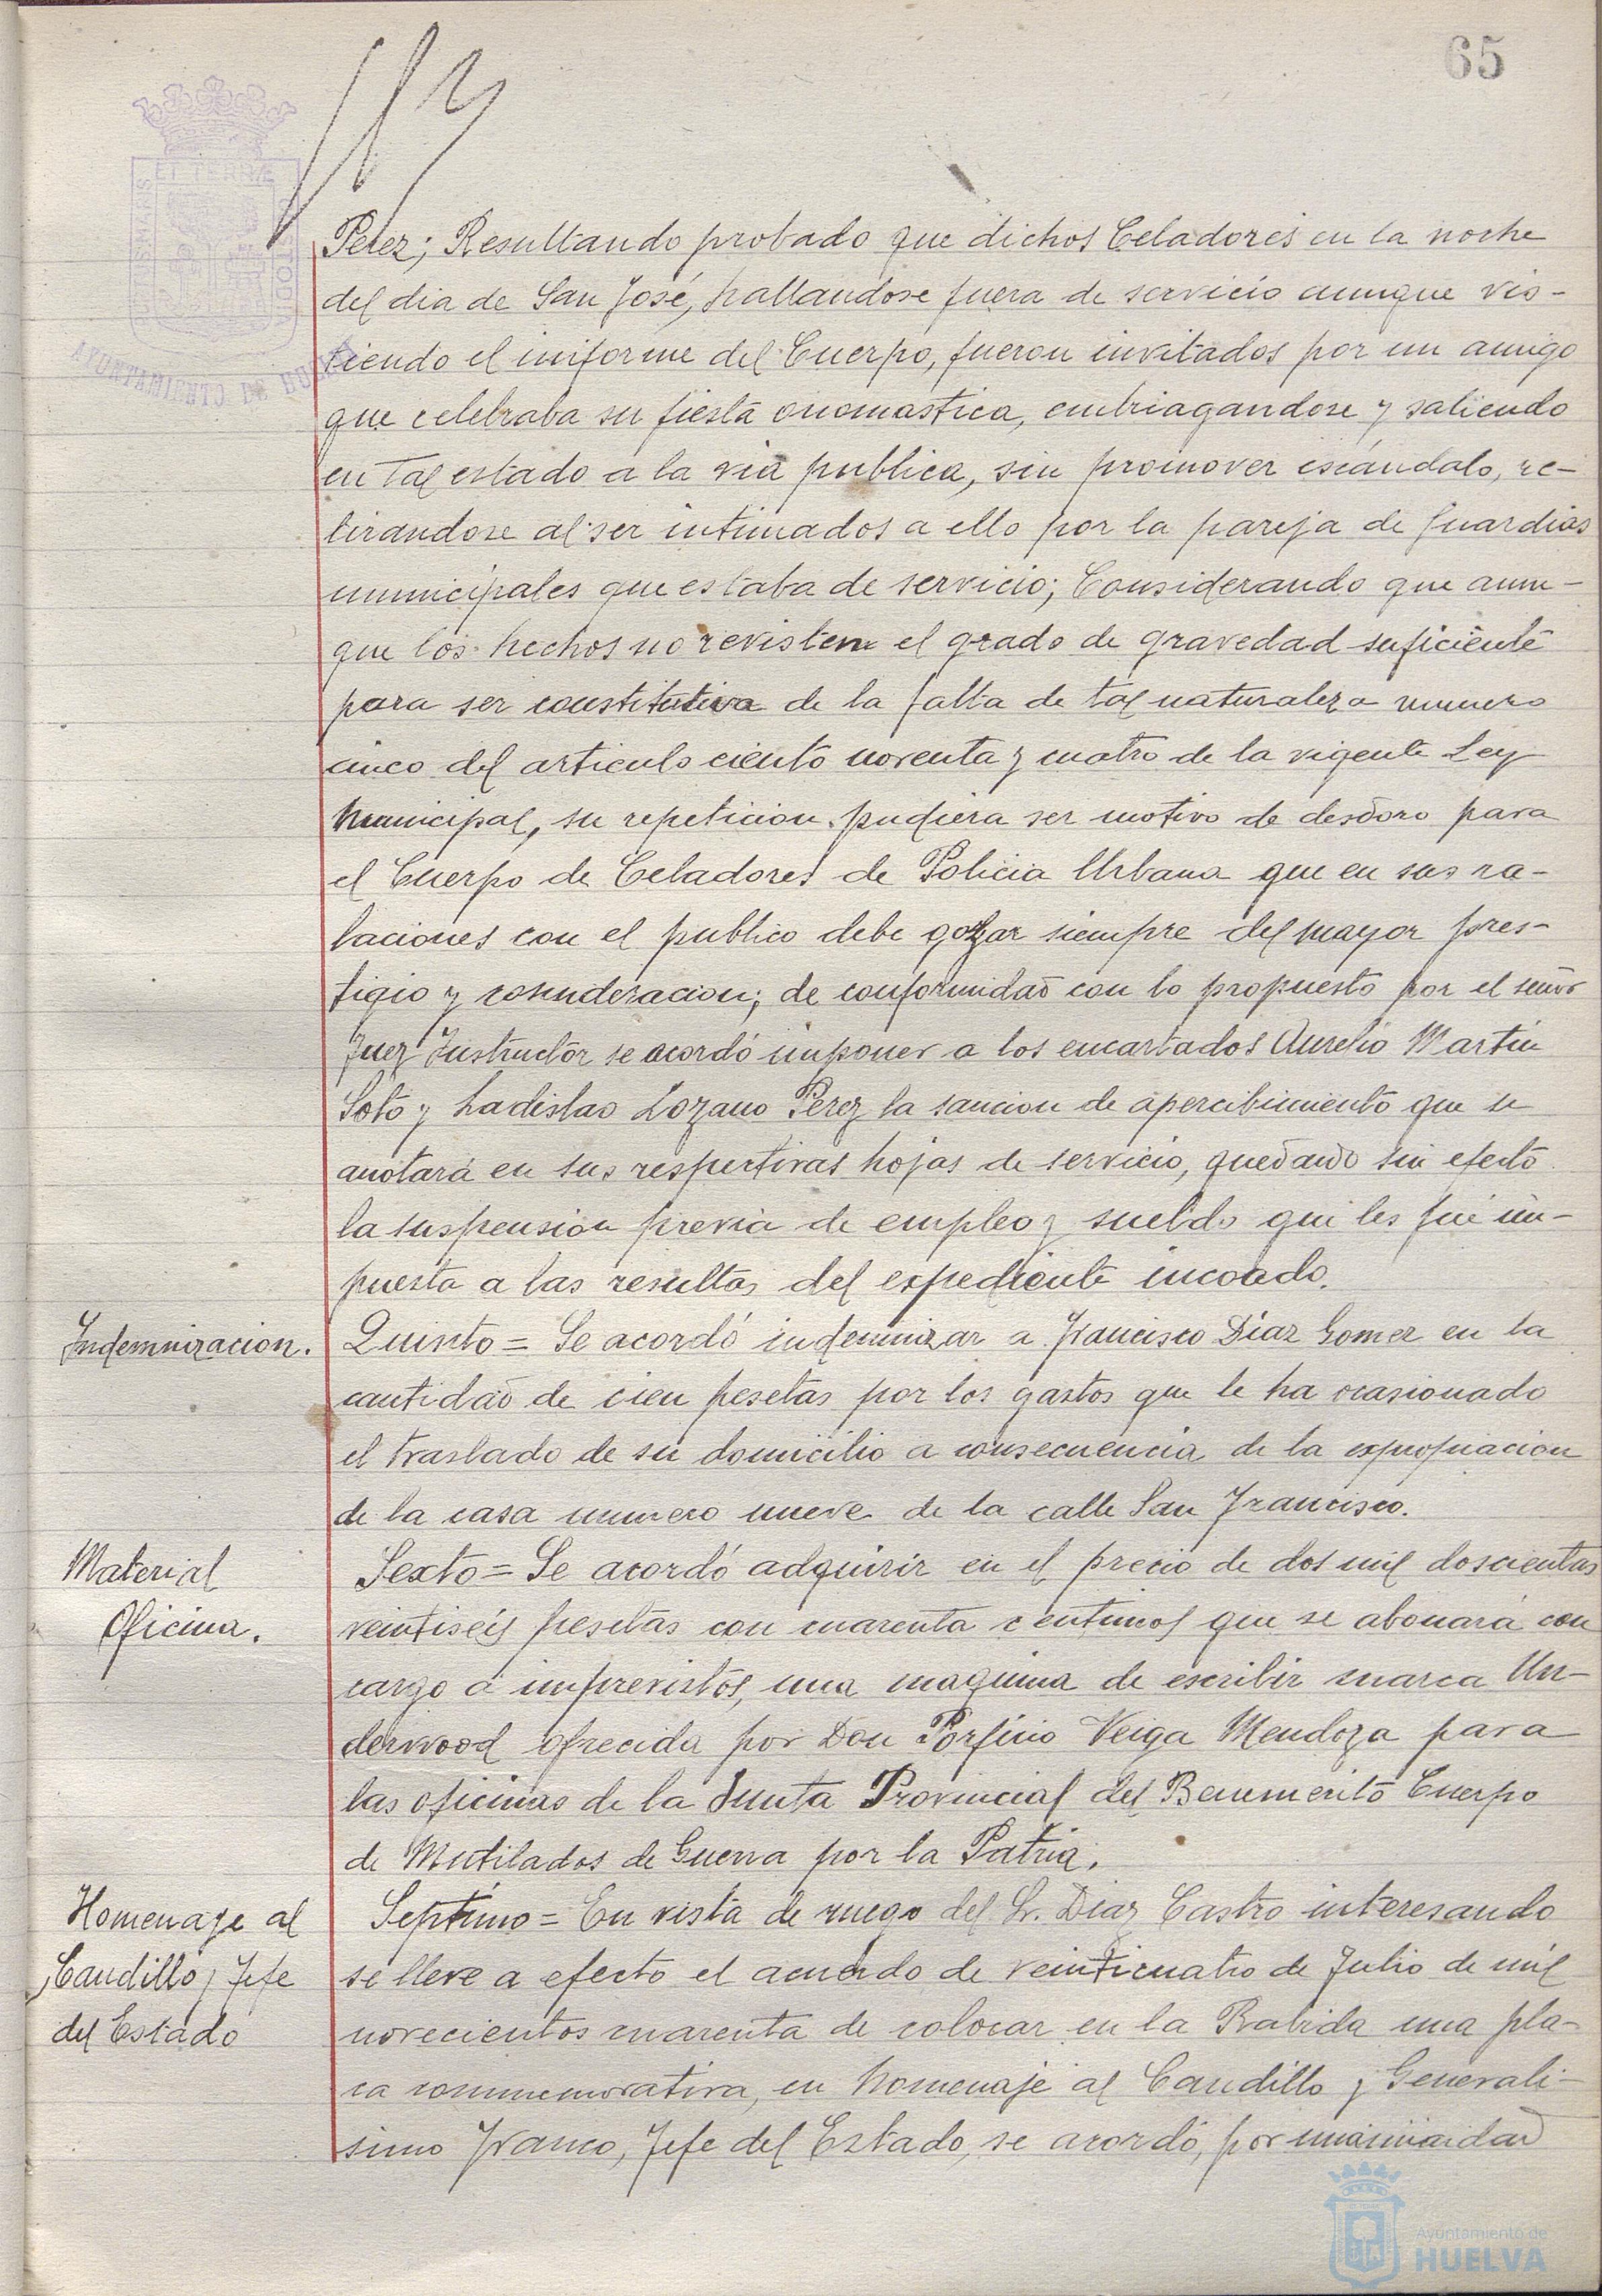 65
PORTUS MARIS
ET TERRÆ
CUSTODIA
AYUNTAMIENTO DE HUELVA
Perez; Resultando probado que dichos Celadores en la noche
del dia de San José, hallandose fuera de servicio aunque vis-
tiendo el uniforme del Cuerpo, fueron invitados por un amigo
que celebraba su fiesta onomastica, embriagandose y saliendo
en tal estado a la via publica, sin promover escándalo, re-
tirandose al ser intimados a ello por la pareja de guardias
municipales que estaba de servicio; Considerando que aun-
que los hechos no revisten el grado de gravedad suficiente
para ser constitutiva de la falta de tal naturaleza numero
cinco del articulo ciento noventa y cuatro de la vigente Ley
Municipal, su repeticion pudiera ser motivo de desdoro para
el Cuerpo de Celadores de Policia Urbana que en sus ra-
laciones con el publico debe gozar siempre del mayor pres-
tigio y consideracion; de conformidad con lo propuesto por el señor
Juez Instructor se acordó imponer a los encartados Aurelio Martin
Soto y Ladislao Lozano Perez la sancion de apercibimiento que se
anotará en sus respectivas hojas de servicio, quedando sin efecto
la suspension previa de empleo y sueldo que les fué im-
puesta a las resultas del expediente incoado.
Indemnizacion.
Quinto = Se acordó indemnizar a Francisco Diaz Gomez en la
cantidad de cien pesetas por los gastos que le ha ocasionado
el traslado de su domicilio a consecuencia de la expropiacion
de la casa numero nueve de la calle San Francisco.
Material
Oficina.
Sexto = Se acordó adquirir en el precio de dos mil doscientas
veintiseis pesetas con cuarenta centimos que se abonará con
cargo a imprevistos, una maquina de escribir marca Un-
derwood ofrecida por Don Porfirio Veiga Mendoza para
las oficinas de la Junta Provincial del Benemerito Cuerpo
de Mutilados de Guerra por la Patria.
Homenaje al
Caudillo y Jefe
del Estado
Septimo = En vista de ruego del Sr. Diaz Castro interesando
se lleve a efecto el acuerdo de veinticuatro de Julio de mil
novecientos cuarenta de colocar en la Rabida una pla-
ca conmemorativa, en homenaje al Caudillo y Generali-
simo Franco, Jefe del Estado, se acordó, por unanimidad
Ayuntamiento de
HUELVA